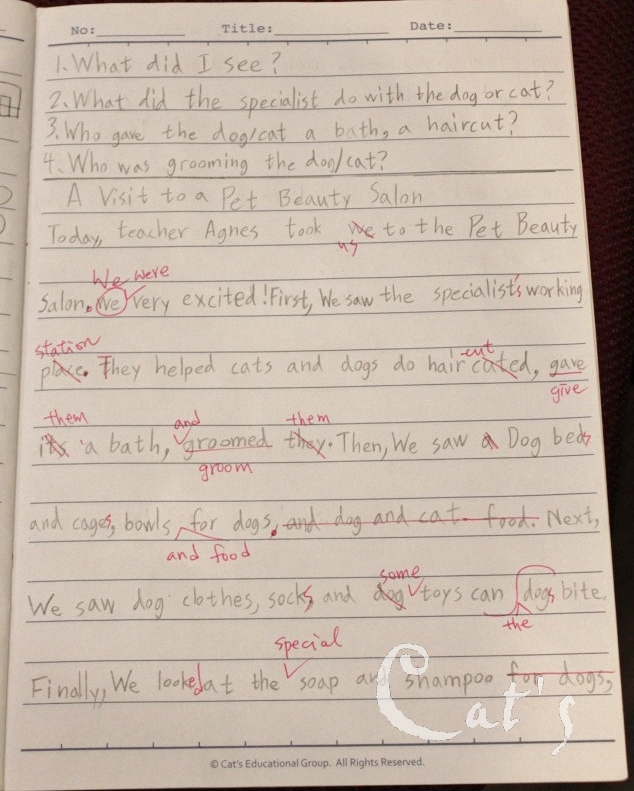 No: Title: Date:
1. What did I see?
2. What did the specialist do with the dog or cat?
3. Who gave the dog/cat a bath, a haircut?
4. Who was grooming the dog/cat?
A Visit to a Pet Beauty Salon
Today, teacher Agnes took we to the Pet Beauty
us
We were
Salon. we very excited! First, We saw the specialist's working
station cut
place. They helped cats and dogs do hair cuted, gave
give
them and them
its a bath, groomed they. Then, We saw a Dog beds
groom
and cages, bowls for dogs, and dog and cat food. Next,
and food
some
We saw dog clothes, socks and dog toys can dogs bite.
the
special
Finally, We looked at the soap and shampoo for dogs,
Cat's
© Cat's Educational Group. All Rights Reserved.